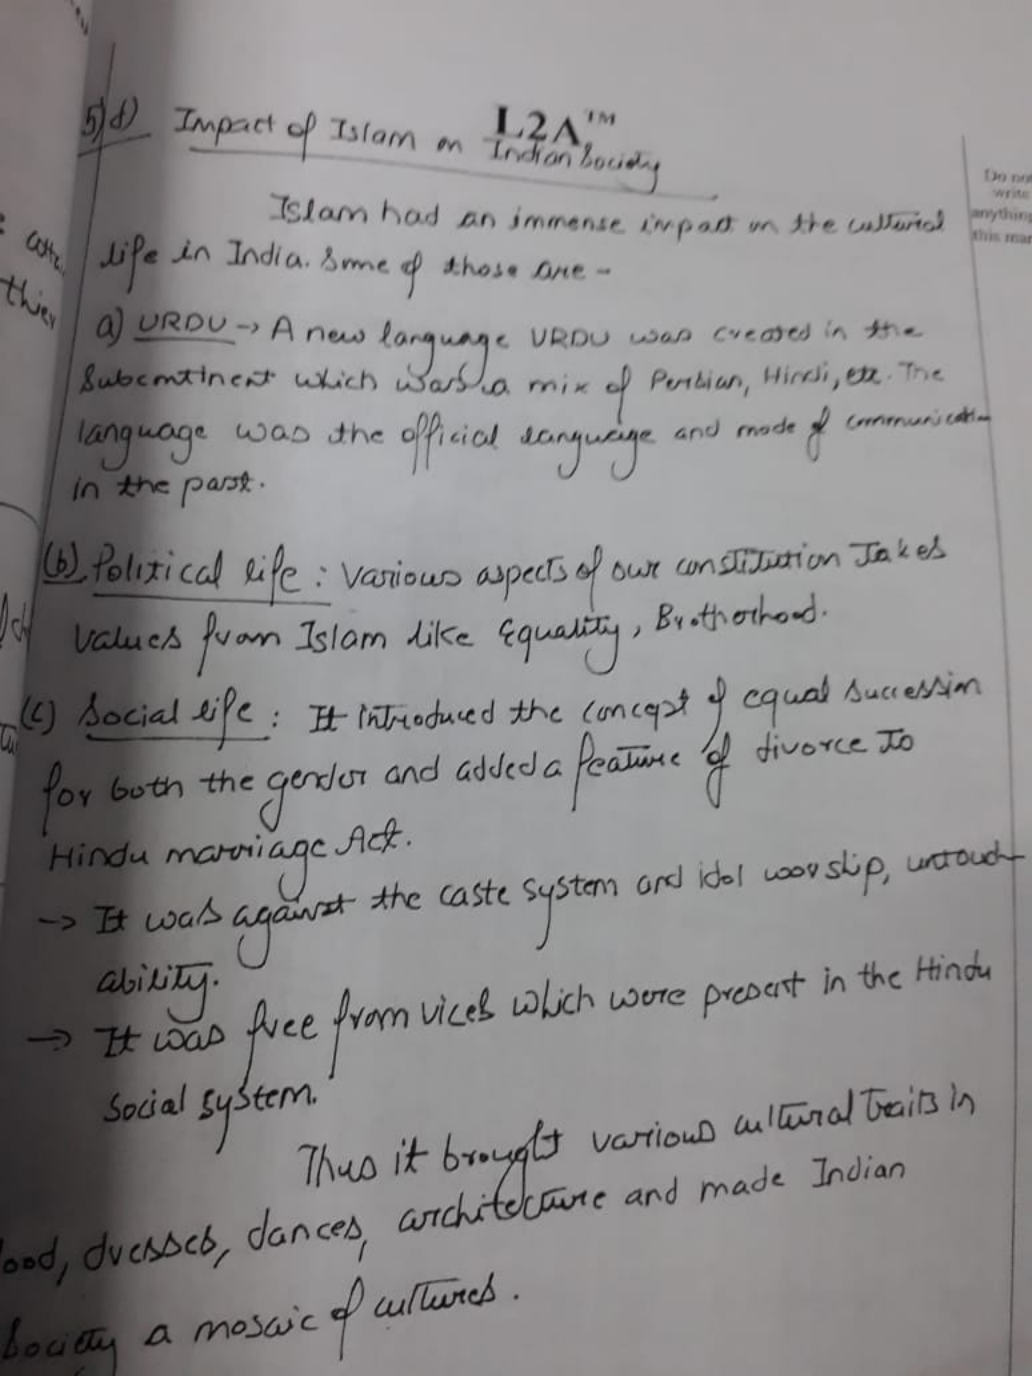 5)d) Impact of Islam on Indian Society
L2A™
Do not
write
anything
this mar
Islam had an immense impact on the cultural
life in India. Some of those are -
a) URDU → A new language URDU was created in the
Subcontinent which was a mix of Persian, Hindi, etc. The
language was the official language and mode of communication
in the past.
(b) Political life : Various aspects of our constitution Takes
values from Islam like Equality, Brotherhood.
(c) Social life : It introduced the concept of equal succession
for both the gender and added a feature of divorce to
Hindu marriage Act.
→ It was against the caste system and idol worship, untouch-
ability.
→ It was free from vices which were present in the Hindu
Social system.
Thus it brought various cultural traits in
ood, dresses, dances, architecture and made Indian
Society a mosaic of cultures.
thier